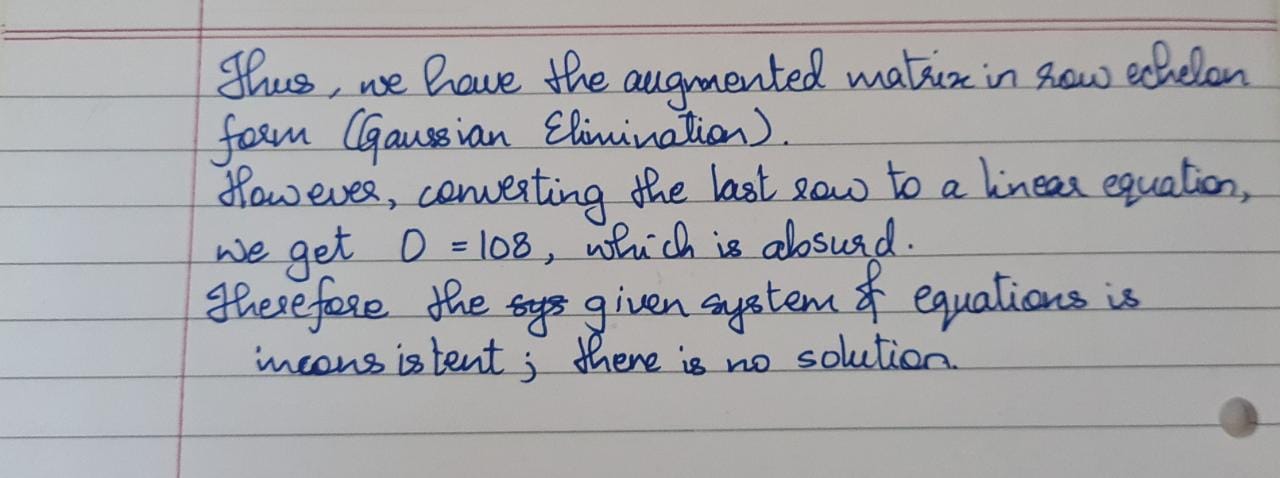 Thus, we have the augmented matrix in row echelon
form (Gaussian Elimination).
However, converting the last row to a linear equation,
we get 0 = 108, which is absurd.
Therefore the sys given system of equations is
inconsistent; there is no solution.